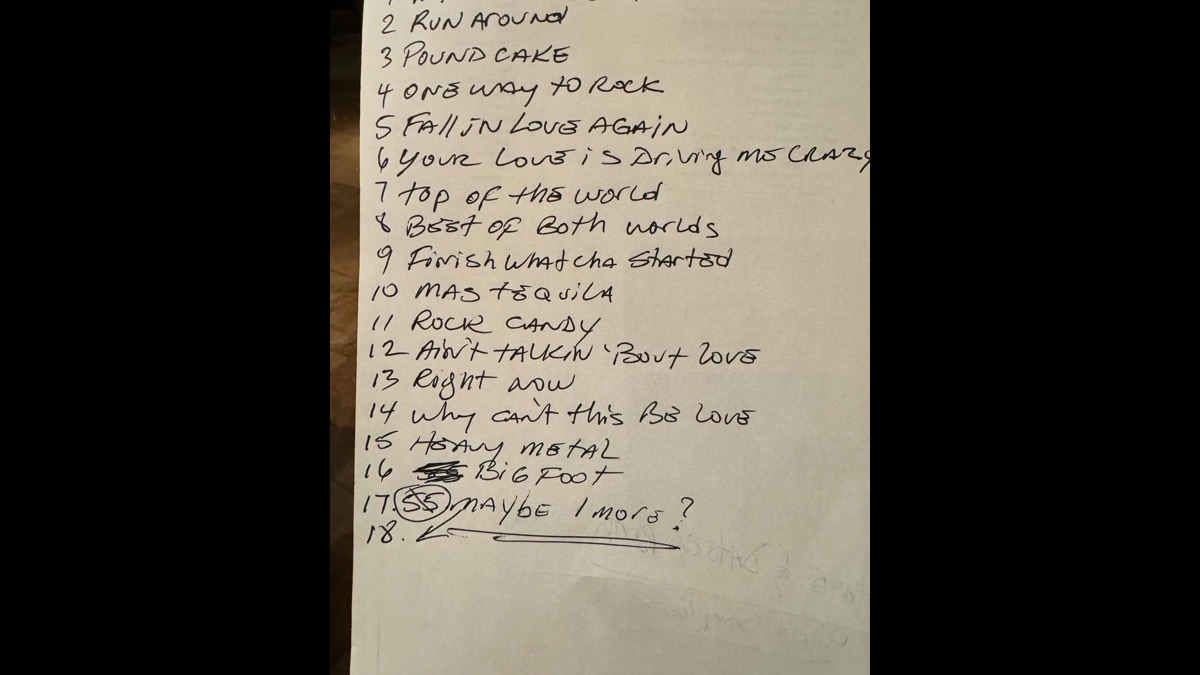 2 RUN AROUND
3 POUND CAKE
4 ONE WAY TO ROCK
5 FALL IN LOVE AGAIN
6 YOUR LOVE iS DRiViNg ME CRAZY
7 top OF thE WORLD
8 BEST OF Both worlds
9 Finish WhAtchA StARTED
10 MAS TEQUiLA
11 ROCK CANDY
12 Ain't TALKIN 'Bout LOVE
13 Right NOW
14 Why CAN't this BE LOVE
15 HEAVY METAL
16 BiG FOOT
17. 55 MAYBE 1 MORE?
18.